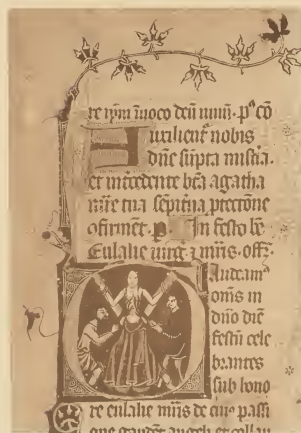 re ip̄m īuoco deū meū. pᵃ cō
Auxilient̄ nobis
dn̄e sūpta misťia.
et intercedente bt̄a agatha
mr̄e tua sēpit̄na p̄tectōne
ꝯfirmēt. In festo bē
Eulalie uirg̃. ⁊ mr̄is. offᵐ.
Audeamᵒ
om̄s in
dn̄o diē
festū cele
brantes
sub hono
re eulalie mr̄is de cuiᵒ passi
one gaudēt angeli et collau